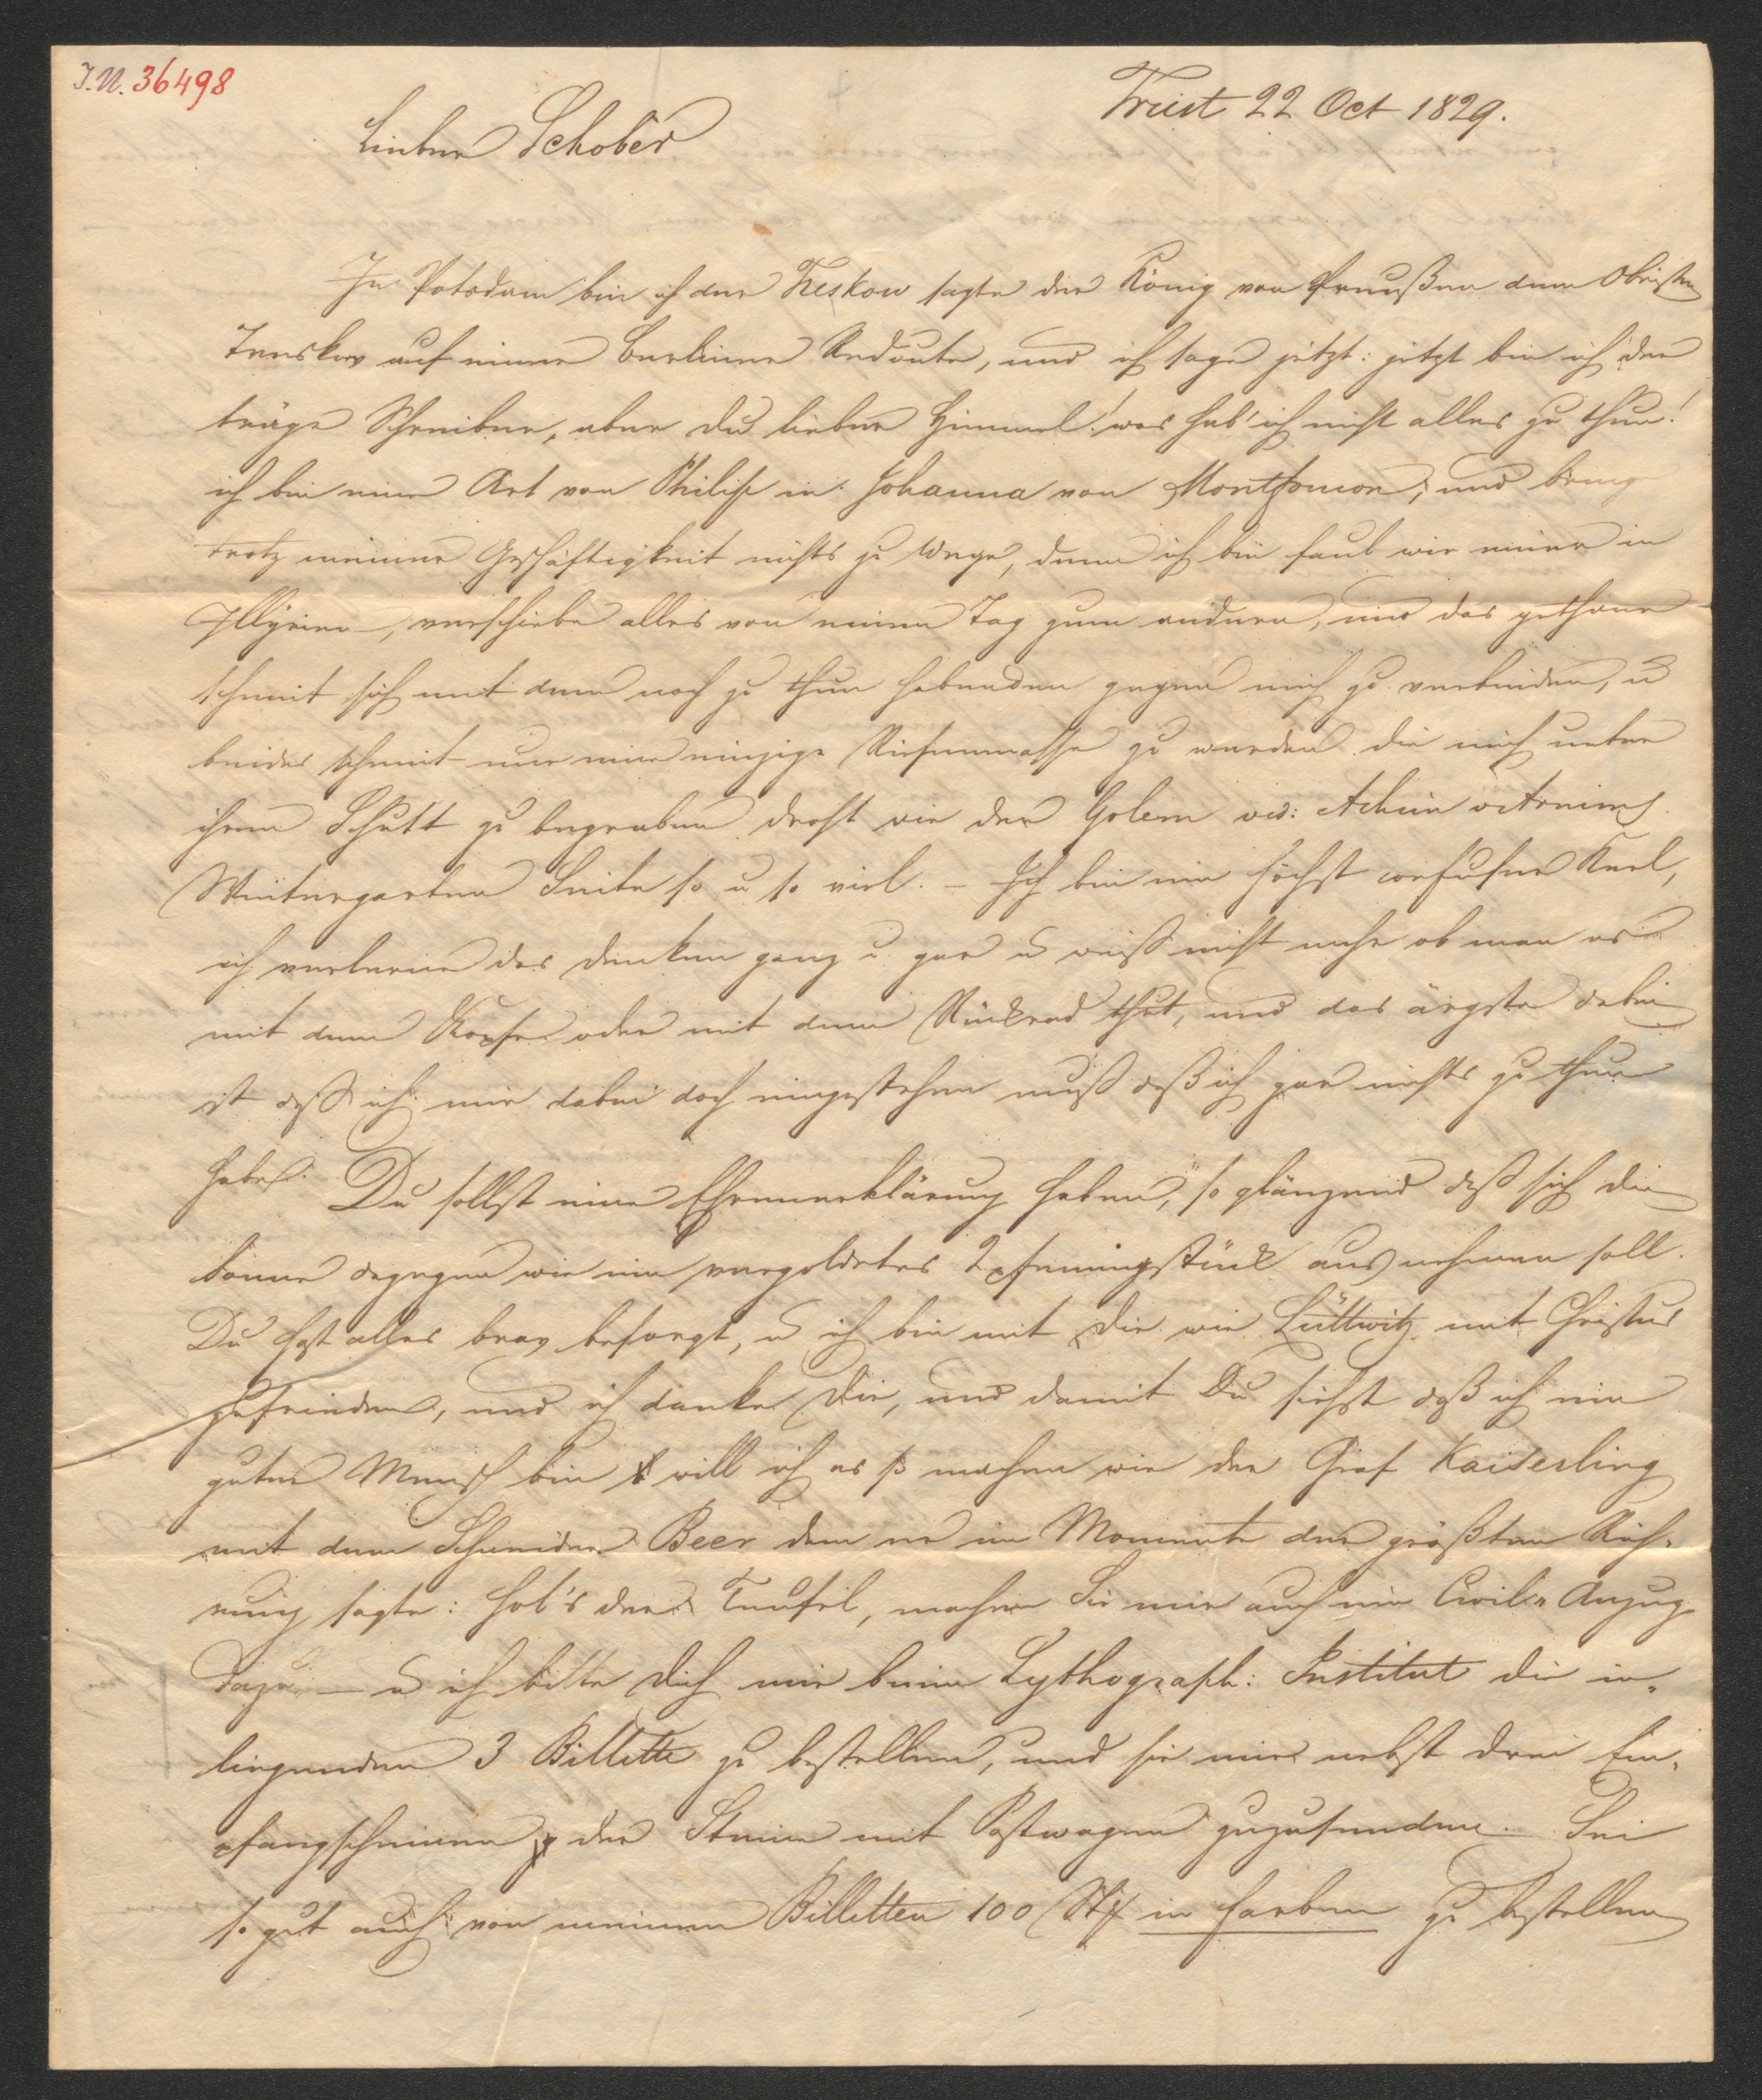 I.N. 36498
Triest 22 Oct 1829.
Lieber Schober
In Potsdam bin ich der Treskow sagte der König von Preußen dem Obristen
Treskow auf einer Berliner Redoute, und ich sage jetzt: jetzt bin ich der
träge Schreiber, aber du lieber Himmel! was hab' ich nicht alles zu thun!
ich bin eine Art von Philipp in Johanna von Montfoucon, und bringe
trotz meiner Geschäftigkeit nichts zu Wege, denn ich bin faul wie einer in
Illyrien, verschiebe alles von einem Tag zum andern, und das gethane
scheint sich mit dem noch zu thun habenden gegen mich zu verbinden, u
beides scheint nur eine einzige Riesenmasse zu werden die mich unter
ihrem Schutt zu begraben droht wie der Golem vid: Achim v Arnims
Wintergarten Seite so u so viel. – Ich bin ein höchst confuser Kerl,
ich verlerne das denken ganz u gar u weiß nicht mehr ob man es
mit dem Kopfe oder mit dem Rückrad thut, und das ärgste dabei
ist daß ich mir dabei doch eingestehen muß daß ich gar nichts zu thun
habe. Du sollst eine Ehrenerklärung haben, so glänzend daß sich die
Sonne dagegen wie ein vergoldetes 2pfenningstück ausnehmen soll.
Du hast alles brav besorgt, u ich bin mit Dir wie Lüttwitz mit Christus
zufrieden, und ich danke Dir, und damit Du siehst daß ich ein
guter Mensch bin will ich es so machen wie der Graf Kaiserling
mit dem Schneider Beer dem er im Momente der größten Rüh-
rung sagte: hol's der Teufel, machen Sie mir auch ein Civil-Anzug
dazu – u ich bitte Dich mir beim Lythograph: Institut die in-
liegenden 3 Billette zu bestellen, und sie mir nebst drei Em-
pfangscheinen der Steine mit Postwagen zuzusenden. Sei
so gut auch von meinen Billetten 100 Stk in Farben zu bestellen